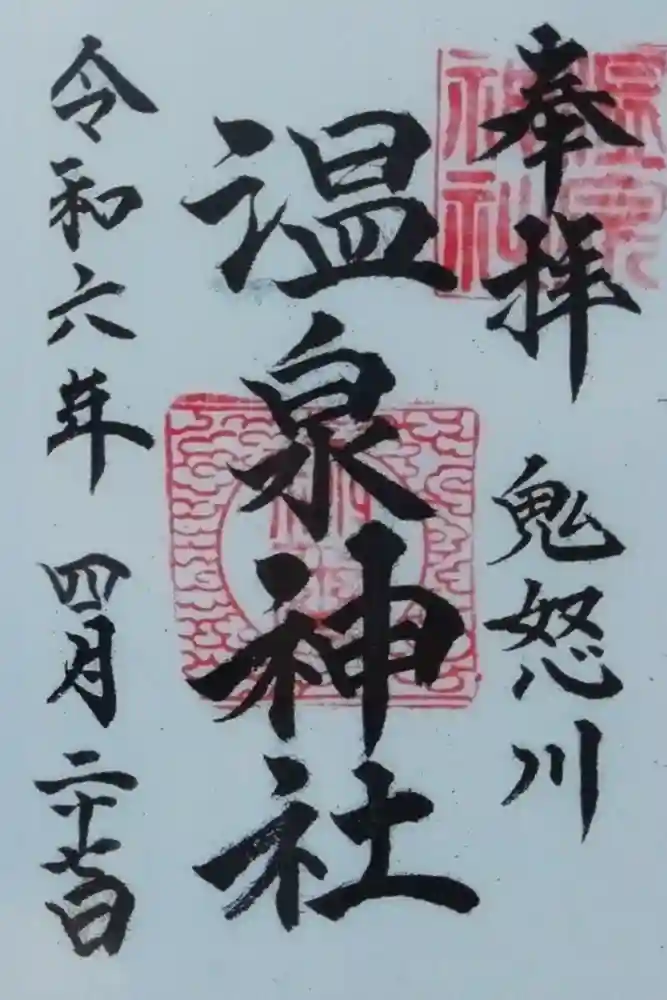 奉拝
鬼怒川
温泉神社
令和六年 四月二十七日